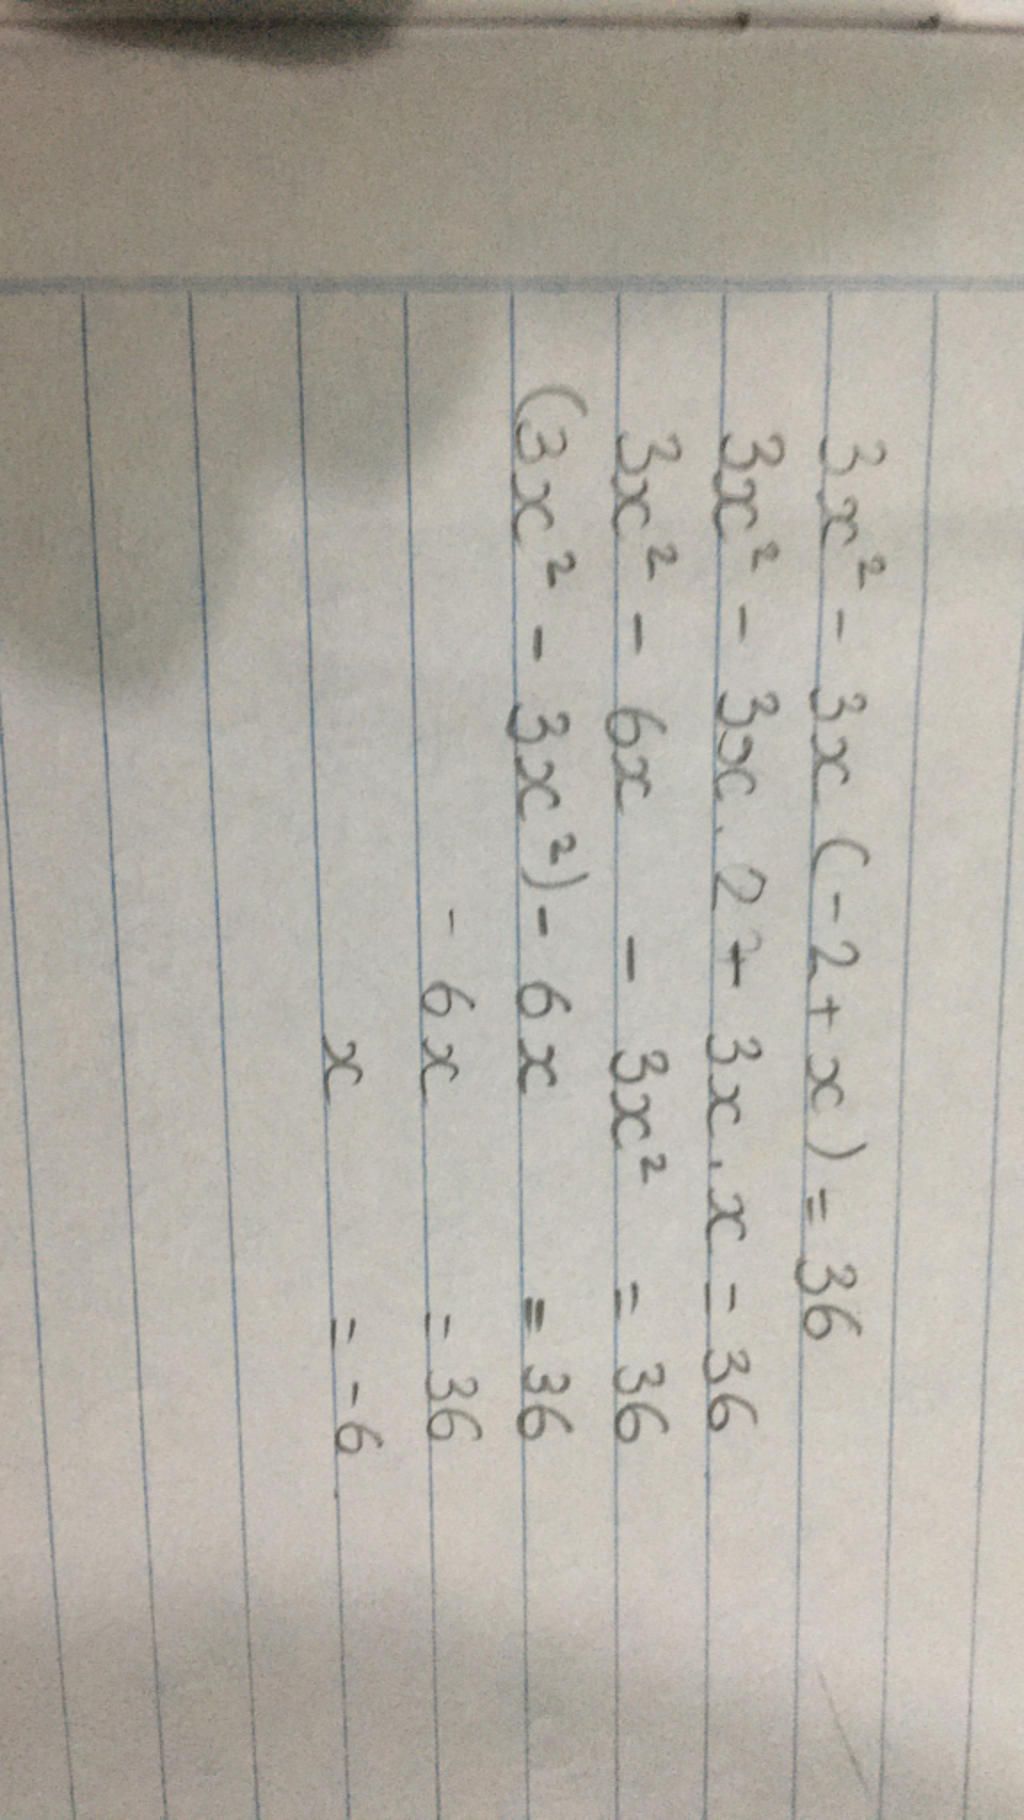 3x² - 3x (-2 + x) = 36
3x² - 3x . 2 + 3x . x = 36
3x² - 6x - 3x² = 36
(3x² - 3x²) - 6x = 36
- 6x = 36
x = -6